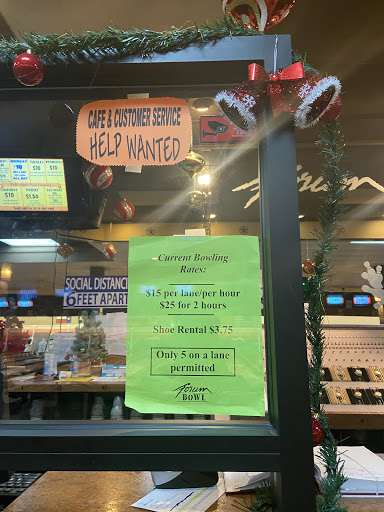 CAFE & CUSTOMER SERVICE
HELP WANTED
Forum
SOCIAL DISTANC
6 FEET APART
Current Bowling
Rates:
$15 per lane/per hour
$25 for 2 hours
Shoe Rental $3.75
Only 5 on a lane
permitted
Forum
BOWL